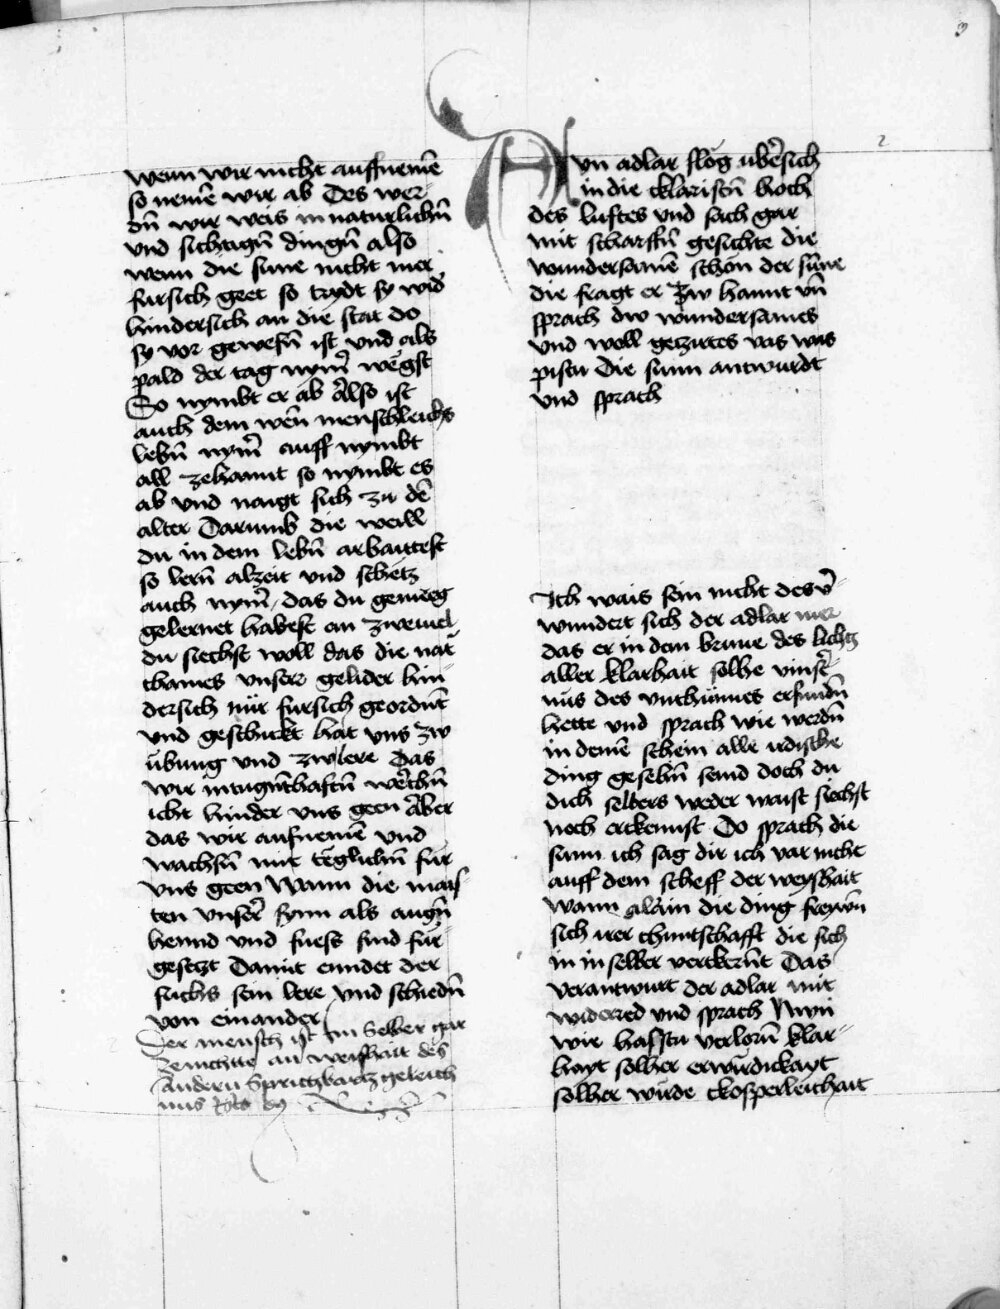 3
2
wenn wir nicht auffnemē
so nemē wir ab Des wer-
dn̄ wir weis in naturlichn̄
und sichtign̄ dingn̄ also
wenn die sunne nicht mer
fursich geet so trydt sy wid
hindersich an die stat do
sy vor gewesn̄ ist und als
pald der tag nym̄ wegst
So nymbt er ab Also ist
auch dem wen̄ menschleichs
lebn̄ nym̄ auff nymbt
all zehannt so nymbt es
ab und naigt sich zu dē
alter Darumb die weill
du in dem lebn̄ arbaittest
so lern̄ alzeit und schetz
auch nym̄ das du genueg
gelernet habest an zweiuel
du siechst woll das die nat-
thames unsers gelider hin
dersich nur fursich geordnt̄
und geschickt hat uns zw
ubung und zwlere Das
wir in tugn̄thaftn̄ werchn̄
icht hinder uns geen Aber
das wir aufnemē und
wachsn̄ mit teglichm̄ fur
uns geen Wann die mais-
ten unser synn als augn̄
hennd und fuess sind fur
gesetzt Damit enndet der
fuchs sein lere und schiedn̄
von einander
Der mensch ist im selber gar
zenichtte an weishait des
Andern Sprichbartz geleich
nus
Ayn adlar flog ubersich
in die cklaristn̄ hoch
des luftes und sach gar
mit scharffn̄ gesichte die
wundersamē schon der sune
die fragt er zw hannt un̄
sprach dw wundersames
und woll getzirtes vas was
pistu Die sunn antwurdt
und sprach
Ich wais sein nicht des v̄-
wundert sich der adlar mer
das er in dem brunne des lichtz
aller klarhait solhe vinst̄-
nus des unthumes erfundn̄
hette und sprach wie werdn̄
in deinē schein alle irdische
ding gesehn̄ seind doch du
dich selbers weder waist siechst
noch erckennst Do sprach die
sunn ich sag dir ich var nicht
auff dem scheff der weyshait
wann alain die ding frewn̄
sich irer chuntschafft die sich
in in selber verckern̄t Das
verantwurt der adlar mit
widerred und sprach Nun
wie hastu verlorn̄ klar-
hayt solher erwirdickayt
solher wirde ckosperleichait